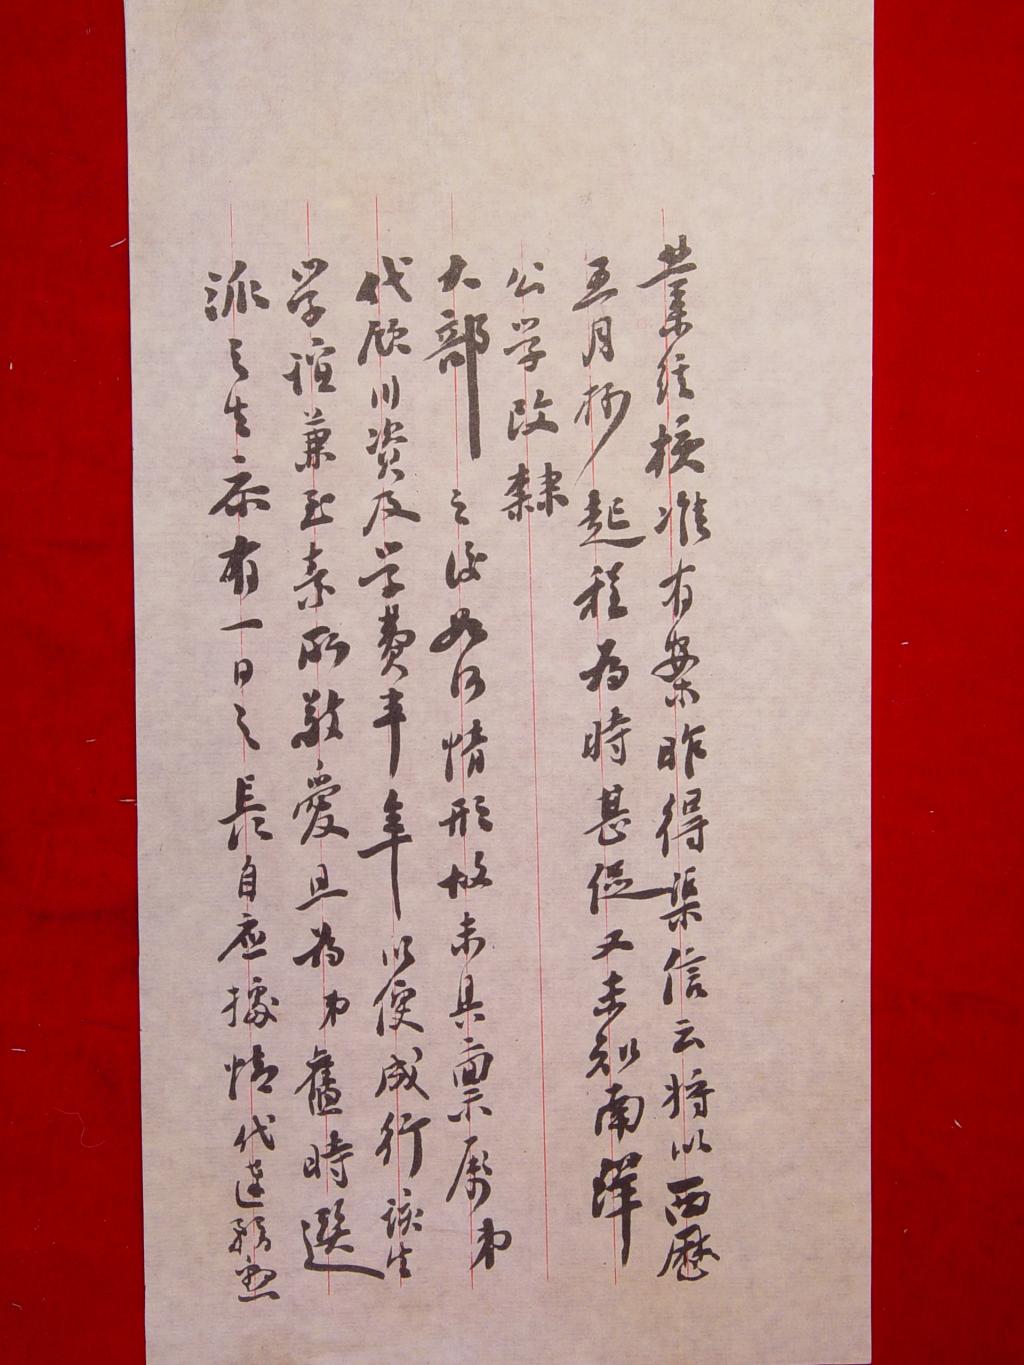 業經核准有案昨得渠信云將以西歷
五月杪起程為時甚促又未知南洋
公学改隸
大部之後如何情形故未具稟屬弟
代領川資及学費半年以便成行該生
学誼兼至素所敬愛且為弟舊時選
派之生亦有一日之長自应據情代達務祈